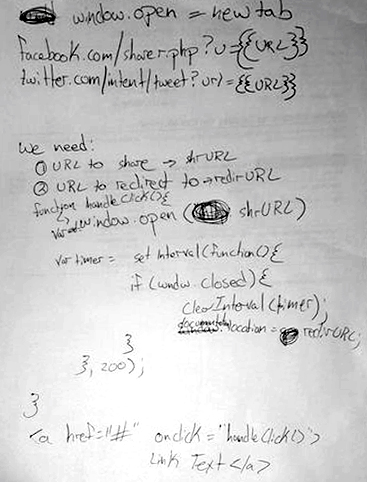 window.open = new tab
facebook.com/sharer.php?u={{URL}}
twitter.com/intent/tweet?url={{URL}}
we need:
① URL to share → shrURL
② URL to redirect to → redirURL
function handleClick() {
var window.open ( shrURL)
var timer = setInterval(function() {
if (window.closed) {
ClearInterval(timer);
document.location = redirURL;
}
}, 200);
}
<a href="#" onclick="handleClick()">
Link Text </a>